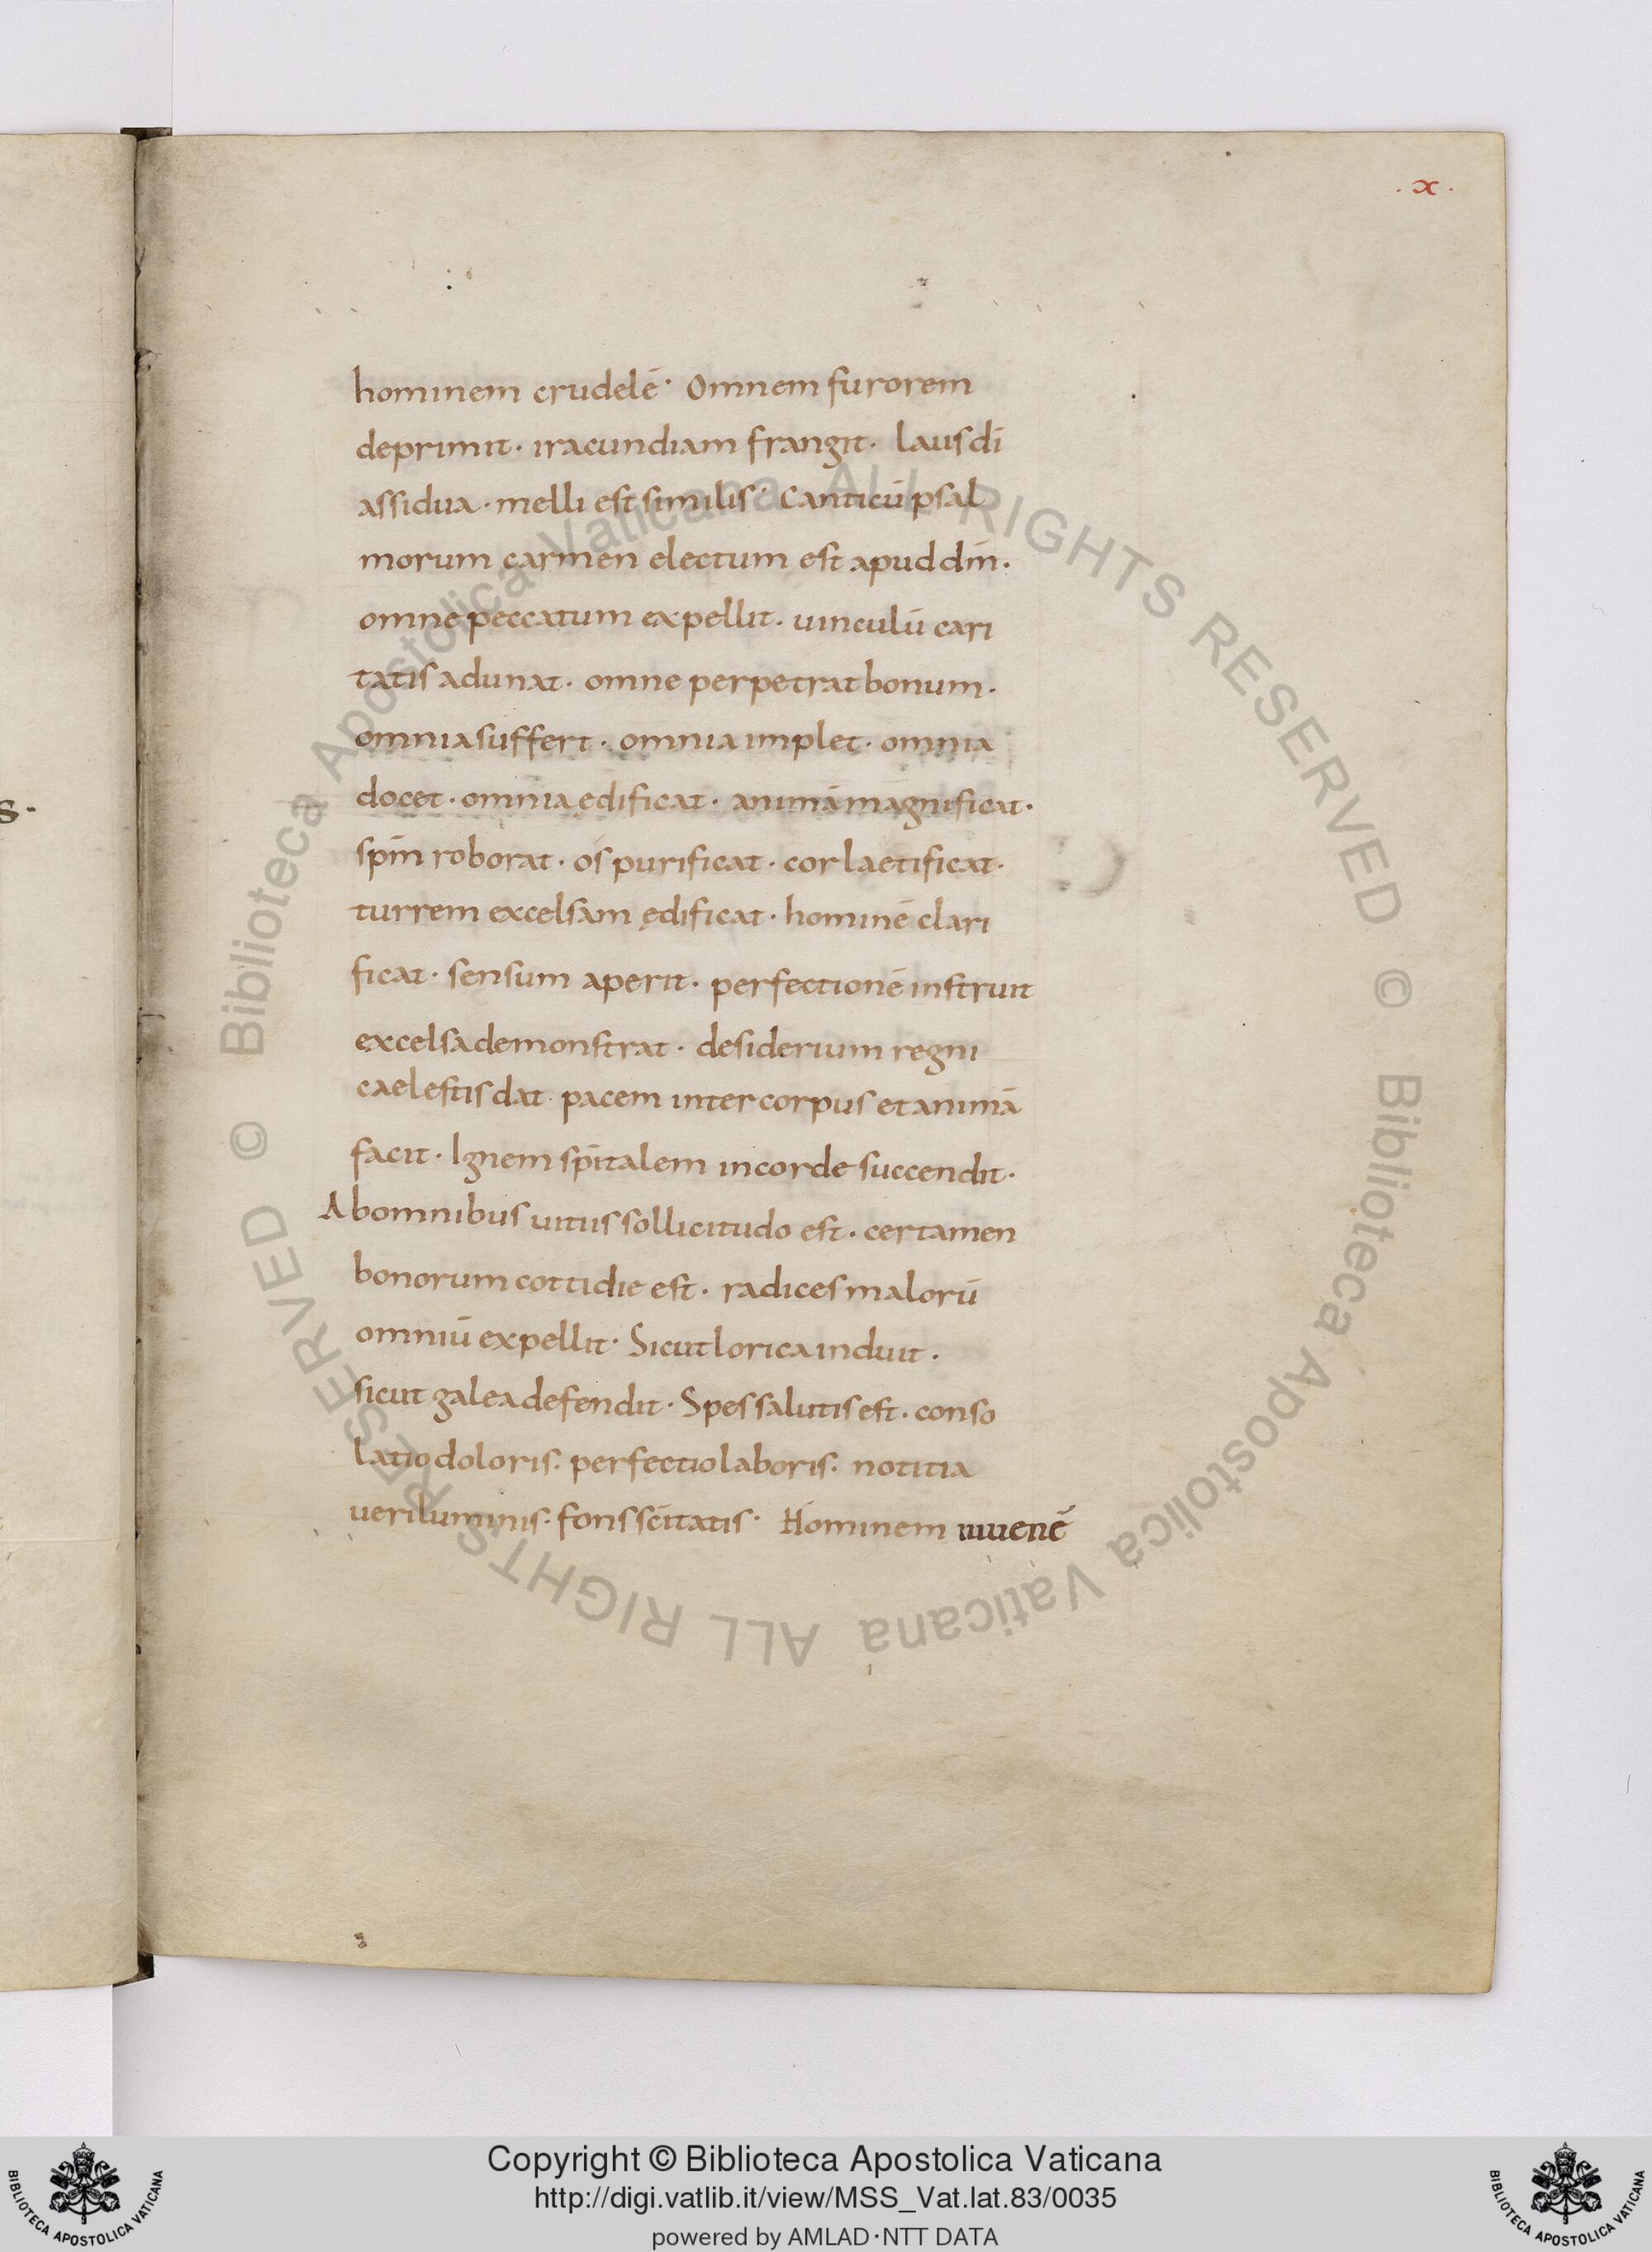 . x .
hominem crudelē· Omnem furorem
deprimit· iracundiam frangit· laus dī
assidua· melli est similis· Canticū psal
morum carmen electum est apud dm̄·
omne peccatum expellit· uinculū cari
tatis adunat· omne perpetrat bonum·
omnia suffert· omnia implet· omnia
docet· omnia ędificat· animā magnificat·
spm̄ roborat· os purificat· cor laetificat·
turrem excelsam ędificat· hominē clari
ficat· sensum aperit· perfectionē instruit
excelsa demonstrat· desiderium regni
caelestis dat· pacem inter corpus et animā
facit· Ignem spītalem in corde succendit·
Ab omnibus uitiis sollicitudo est· certamen
bonorum cottidie est· radices malorū
omniū expellit· Sicut lorica induit·
sicut galea defendit· Spes salutis est· conso
latio doloris· perfectio laboris· notitia
ueri luminis· fons scītatis· Hominem iuuenē
s·
© Biblioteca Apostolica Vaticana ALL RIGHTS RESERVED
© Biblioteca Apostolica Vaticana ALL RIGHTS RESERVED
Copyright © Biblioteca Apostolica Vaticana
http://digi.vatlib.it/view/MSS_Vat.lat.83/0035
powered by AMLAD·NTT DATA
BIBLIOTECA APOSTOLICA VATICANA
BIBLIOTECA APOSTOLICA VATICANA